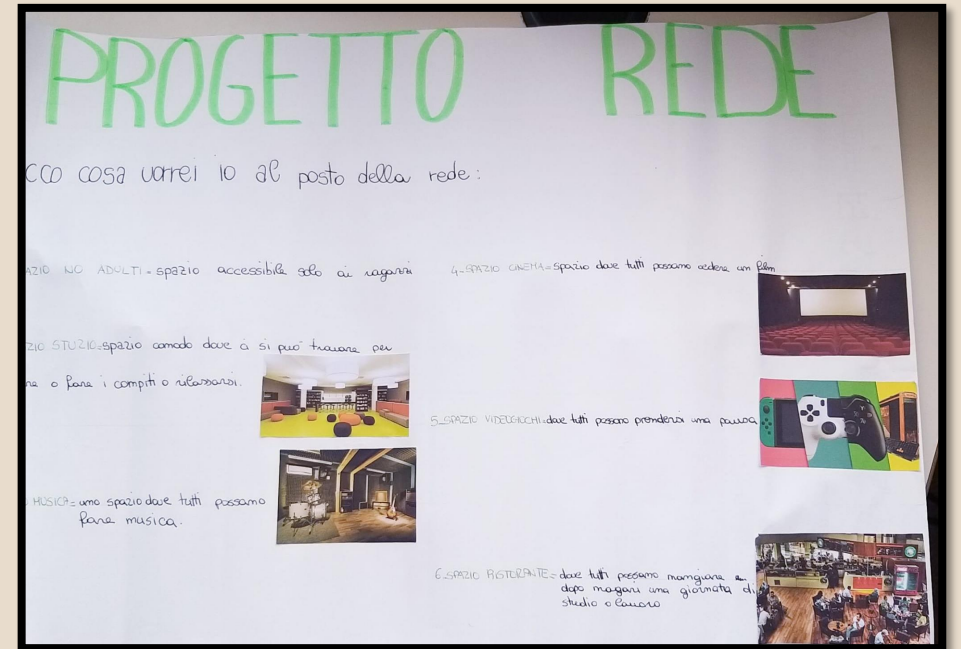 PROGETTO REDE
CCO COSA vorrei io al posto della rede:
AZIO NO ADULTI = spazio accessibile solo ai ragazzi
ZIO STUZIO = spazio comodo dove ci si può trovare per
re o fare i compiti o rilassarsi.
MUSICA = uno spazio dove tutti possano
fare musica.
4-SPAZIO CINEMA = spazio dove tutti possano vedere un film
5-SPAZIO VIDEOGIOCHI = dove tutti possano prendersi una pausa
6-SPAZIO RISTORANTE = dove tutti possano mangiare e
dopo magari una giornata di
studio o lavoro